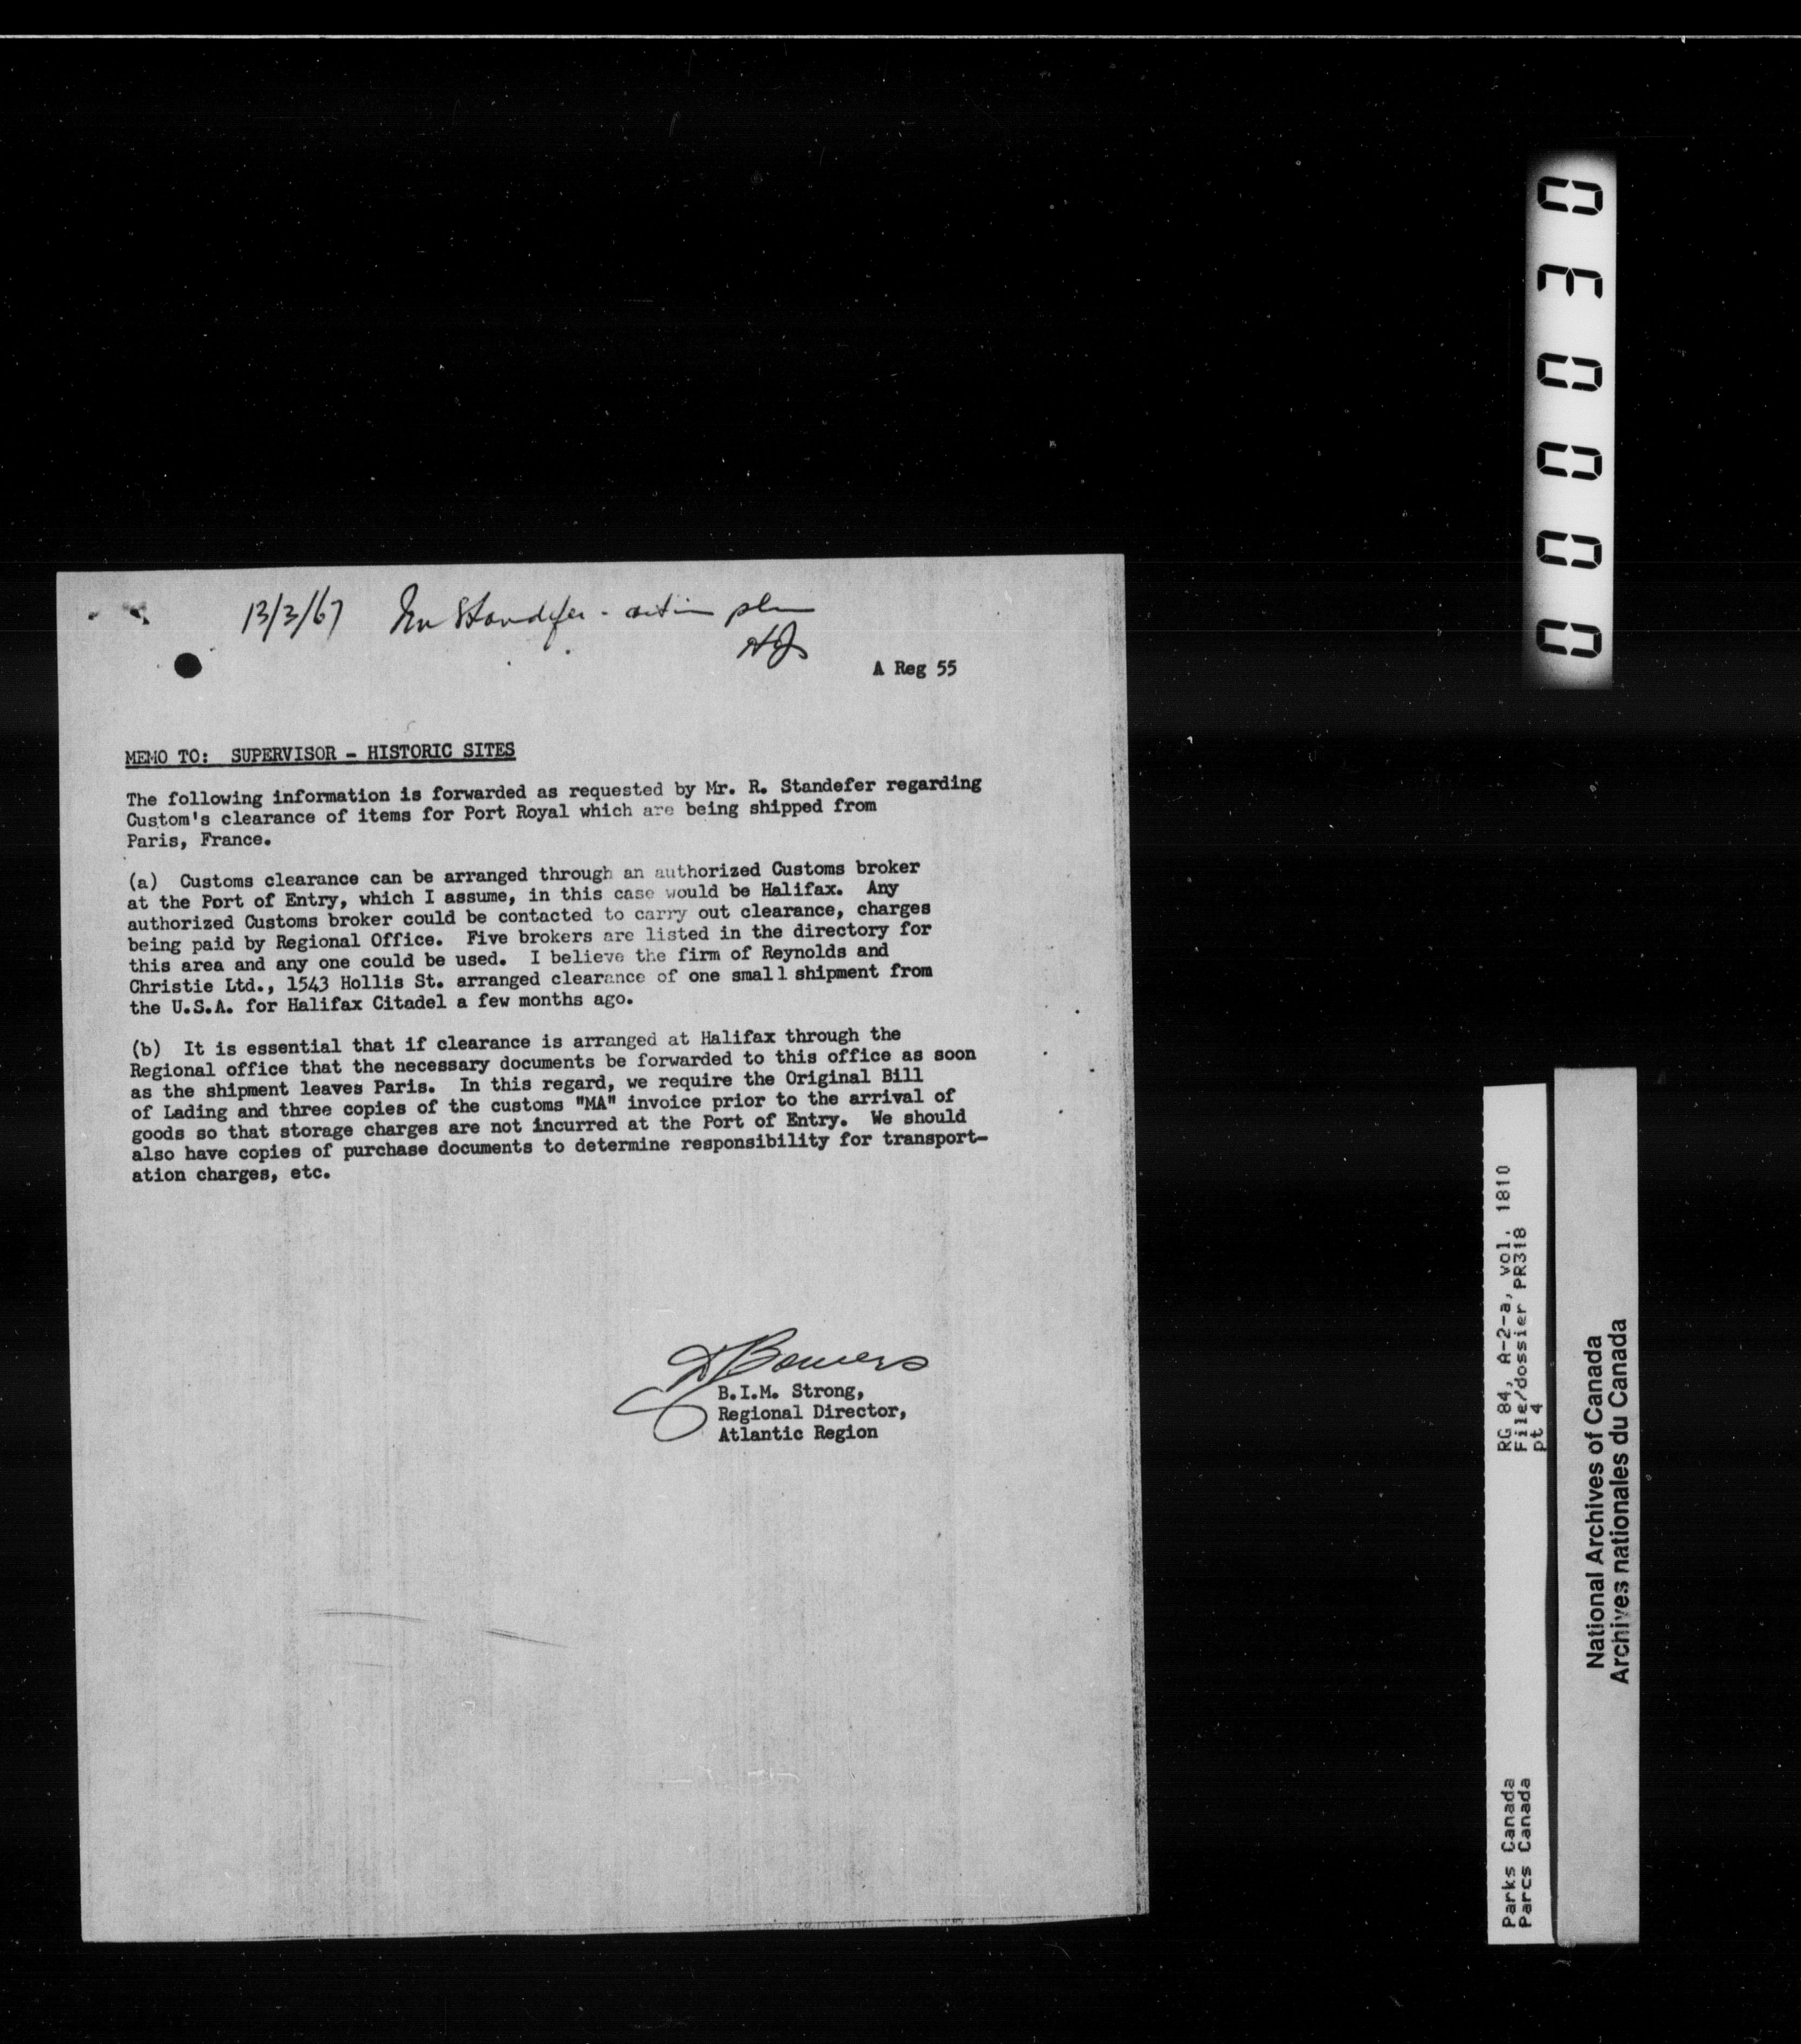 13/3/67 Mr Standefer - action pls
A Reg 55
MEMO TO: SUPERVISOR - HISTORIC SITES
The following information is forwarded as requested by Mr. R. Standefer regarding
Custom's clearance of items for Port Royal which are being shipped from
Paris, France.
(a) Customs clearance can be arranged through an authorized Customs broker
at the Port of Entry, which I assume, in this case would be Halifax. Any
authorized Customs broker could be contacted to carry out clearance, charges
being paid by Regional Office. Five brokers are listed in the directory for
this area and any one could be used. I believe the firm of Reynolds and
Christie Ltd., 1543 Hollis St. arranged clearance of one small shipment from
the U.S.A. for Halifax Citadel a few months ago.
(b) It is essential that if clearance is arranged at Halifax through the
Regional office that the necessary documents be forwarded to this office as soon
as the shipment leaves Paris. In this regard, we require the Original Bill
of Lading and three copies of the customs "MA" invoice prior to the arrival of
goods so that storage charges are not incurred at the Port of Entry. We should
also have copies of purchase documents to determine responsibility for transport-
ation charges, etc.
Bowers
B.I.M. Strong,
Regional Director,
Atlantic Region
000030
RG 84, A-2-a, vol. 1810
File/dossier PR318
pt 4
Parks Canada
Parcs Canada
National Archives of Canada
Archives nationales du Canada